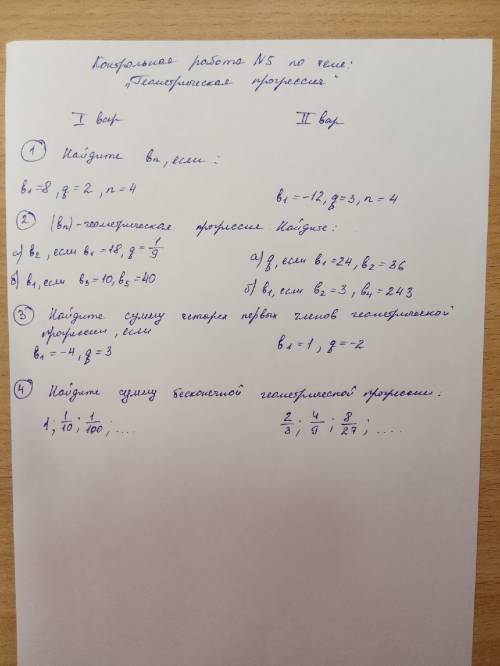 Контрольная работа N5 по теме:
„Геометрическая прогрессия“
I вар
II вар
1 Найдите вn, если:
в1=8, q=2, n=4
в1=-12, q=3, n=4
2 (вn)-геометрическая прогрессия. Найдите:
а) в2, если в1=18, q=1/9
а) q, если в1=24, в2=36
б) в1, если в3=10, в5=40
б) в1, если в2=3, в4=243
3 Найдите сумму четырех первых членов геометрической
прогрессии, если
в1=-4, q=3
в1=1, q=-2
4 Найдите сумму бесконечной геометрической прогрессии:
1; 1/10; 1/100; ....
2/3; 4/9; 8/27; ....